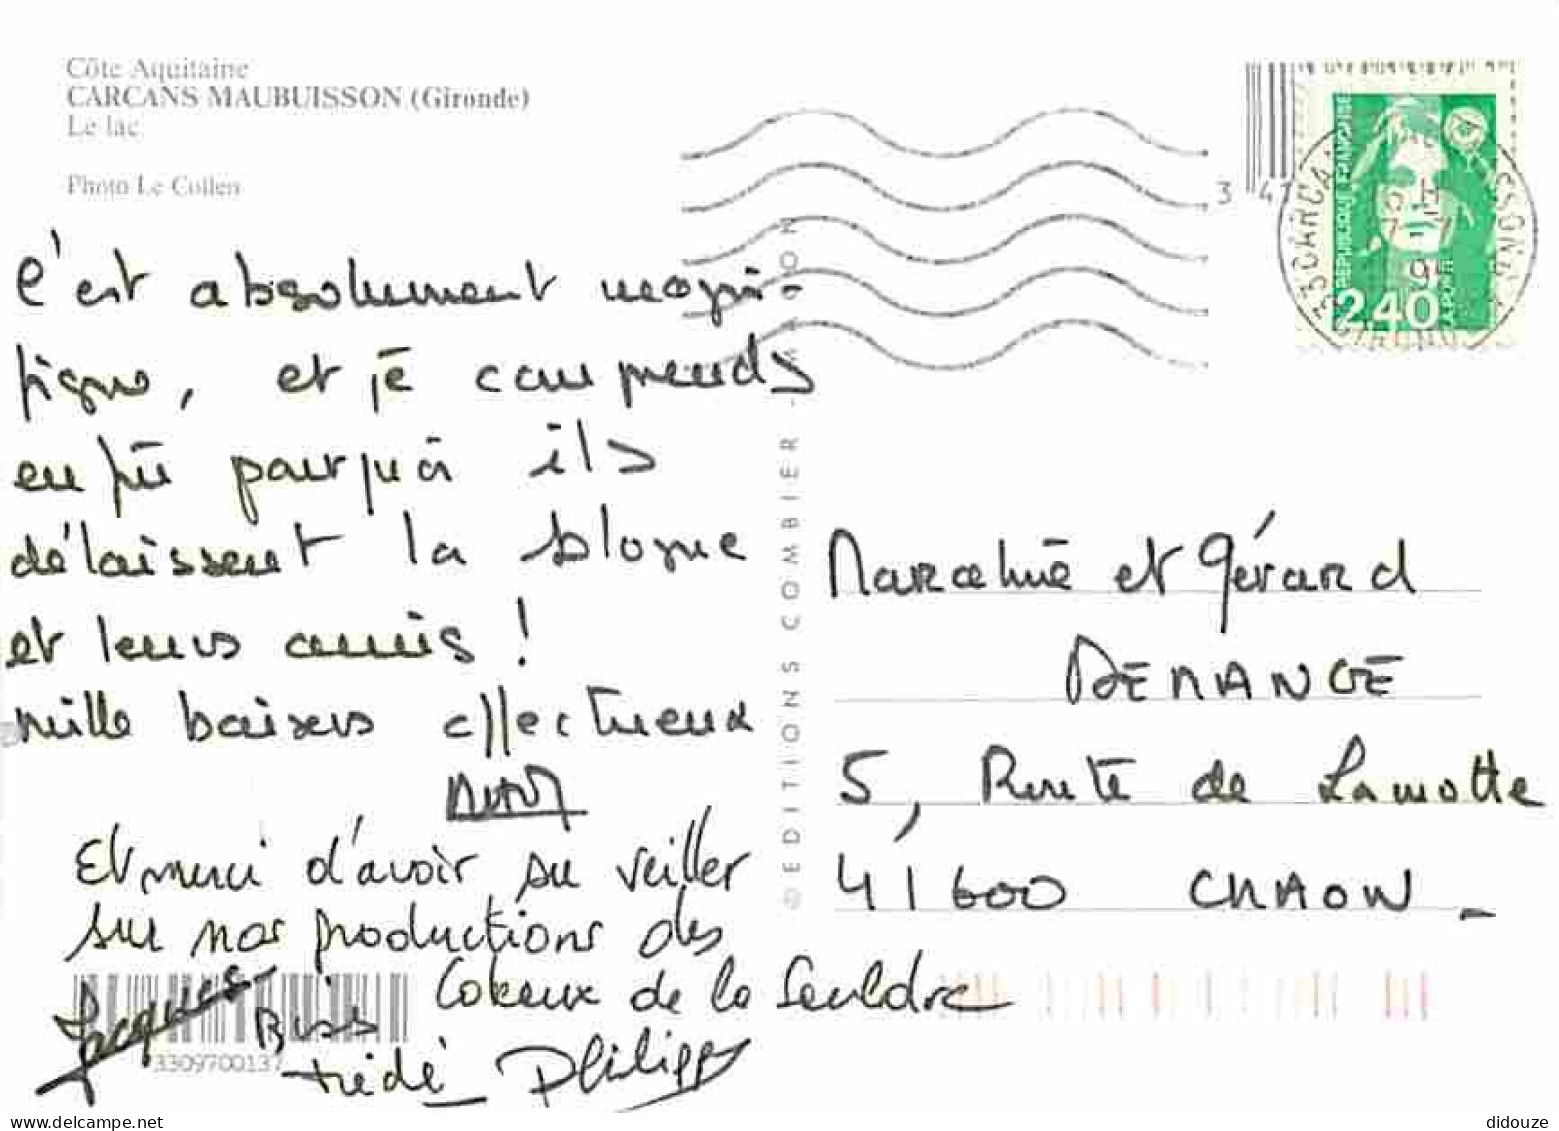 Côte Aquitaine
CARCANS MAUBUISSON (Gironde)
Le lac
Photo Le Collen
C'est absolument magni-
fique, et je comprends
enfin pourquoi ils
délaissent la Sologne
et leurs amis !
Mille baisers affectueux
Et merci d'avoir su veiller
sur nos productions des
Coteaux de la Sauldre
Jacques
Biss
Frédé Philippe
EDITIONS COMBIER - MACON
3309700137
REPUBLIQUE FRANÇAISE
2,40
LA POSTE
3 41
Marceline et Gérard
DEMANGE
5, Route de Lamotte
41600 CHAON
www.delcampe.net
didouze